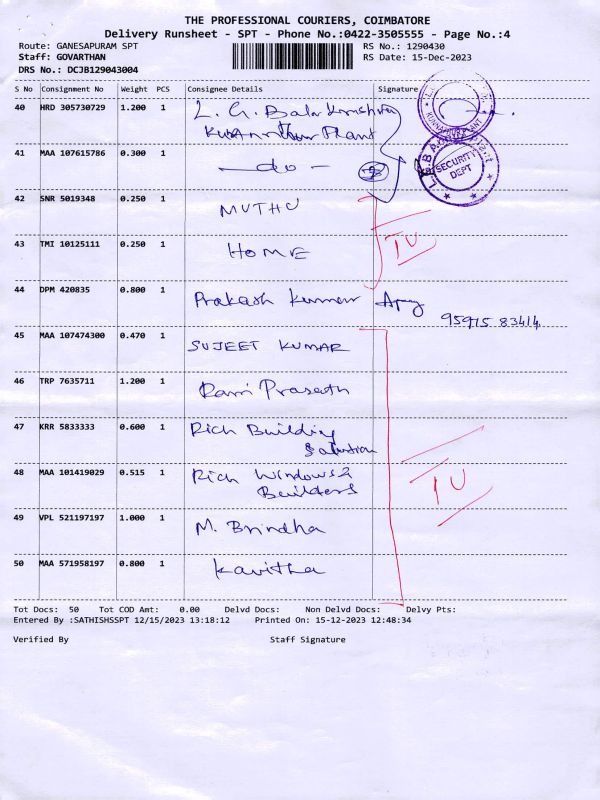 THE PROFESSIONAL COURIERS, COIMBATORE
Delivery Runsheet - SPT - Phone No.:0422-3505555 - Page No.:4
Route: GANESAPURAM SPT
RS No.: 1290430
Staff: GOVARTHAN
RS Date: 15-Dec-2023
DRS No.: DCJB129043004
S No Consignment No Weight PCS Consignee Details Signature
40 HRD 305730729 1.200 1 L. G. Balakrishna
Plant
41 MAA 107615786 0.300 1 - do -
SECURITY
DEPT
42 SNR 5019348 0.250 1 MUTHU
43 TMI 10125111 0.250 1 HOME
IU
44 DPM 420835 0.800 1 Prakash Kumar
95915 83414
45 MAA 107474300 0.470 1 SUJEET KUMAR
46 TRP 7635711 1.200 1 Ram Prasath
47 KRR 5833333 0.600 1 Rich Building
Solution
48 MAA 101419029 0.515 1 Rich Windows &
Builders
IU
49 VPL 521197197 1.000 1 M. Brindha
50 MAA 571958197 0.800 1 Kavitha
Tot Docs: 50 Tot COD Amt: 0.00 Delvd Docs: Non Delvd Docs: Delvy Pts:
Entered By :SATHISHSSPT 12/15/2023 13:18:12 Printed On: 15-12-2023 12:48:34
Verified By Staff Signature